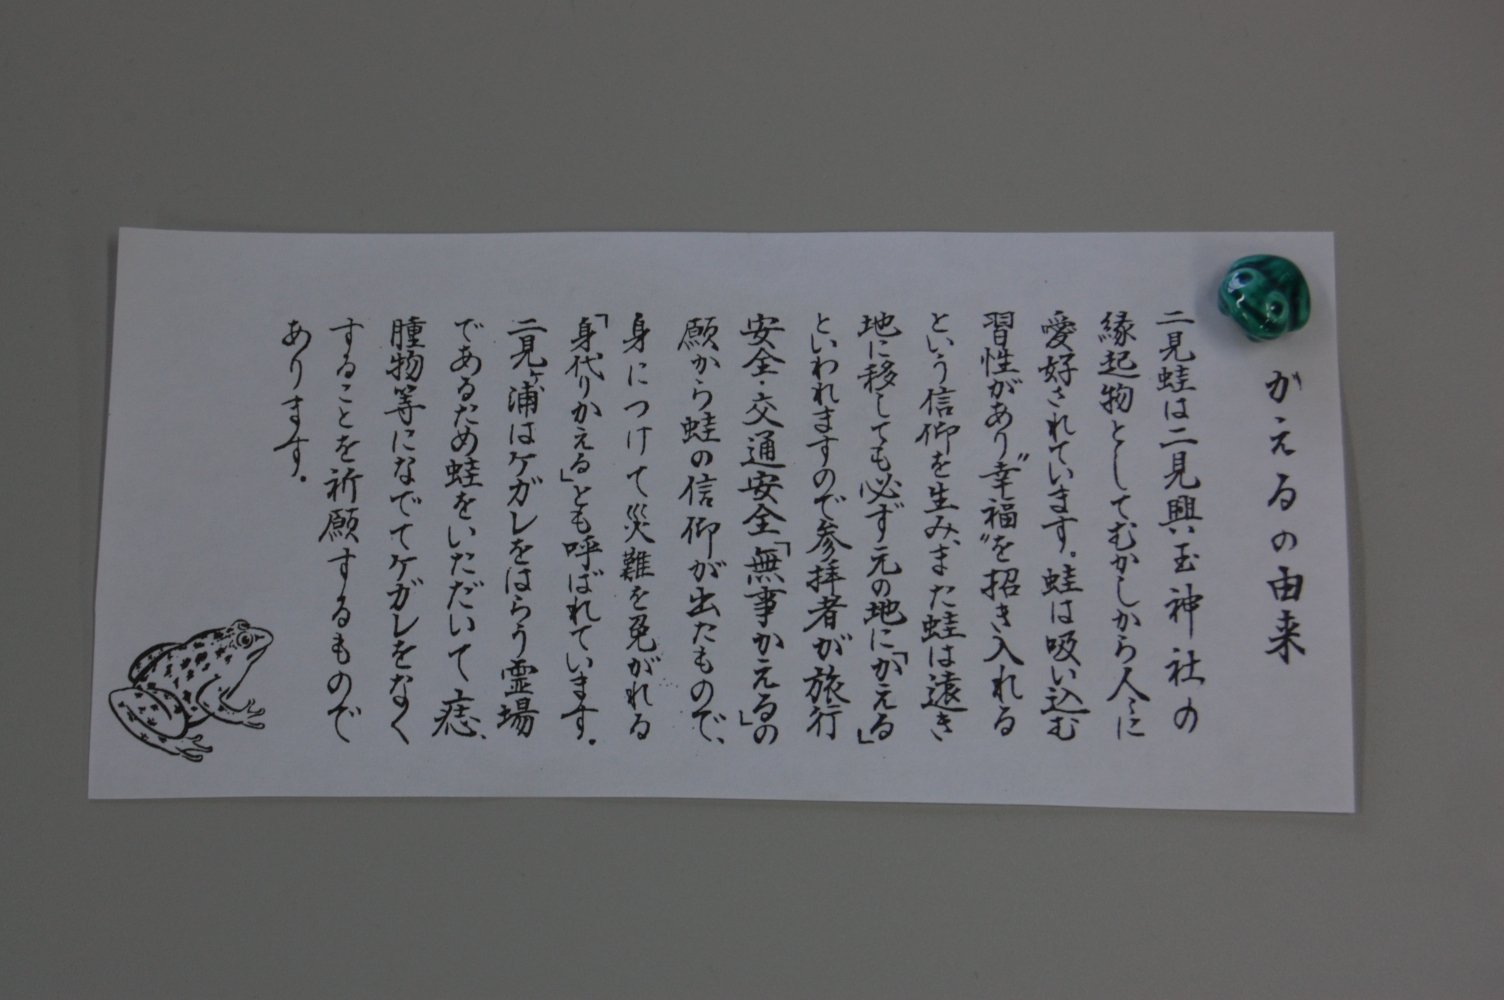 かえるの由来
二見蛙は二見興玉神社の
縁起物としてむかしから人々に
愛好されています。蛙は吸い込む
習性があり〝幸福〟を招き入れる
という信仰を生み、また蛙は遠き
地に移しても必ず元の地に「かえる」
といわれますので参拝者が旅行
安全・交通安全「無事かえる」の
願から蛙の信仰が出たもので、
身につけて災難を免がれる
「身代りかえる」とも呼ばれています。
二見ヶ浦はケガレをはらう霊場
であるため蛙をいただいて痣、
腫物等になでてケガレをなく
することを祈願するもので
あります。